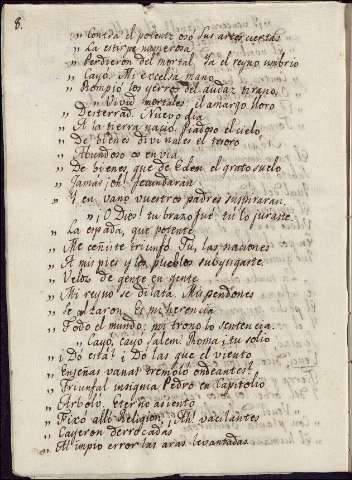 8.
„ Contra el potente osó sus arcos ciertos
„ La estirpe numerosa
„ Perdieron del mortal. Ya el reyno umbrío
„ Cayó. Mi excelsa mano
„ Rompió los yerros del audaz tirano.
„ Vivid mortales, el amargo lloro
„ Desterrad. Nuevo dia
„ A la tierra nació. Piadoso el cielo
„ De bienes divinales el tesoro
„ Abundoso os envia
„ De bienes, que de Eden el grato suelo
„ Jamas ¡oh! fecundarán
„ Y en vano vuestros padres suspiraran.
„ ¡O Dios! tu brazo fué, tú lo juraste.
„ La espada, que potente
„ Me ceñiste triunfó. Tú, las naciones
„ A mis pies y los pueblos subyugaste.
„ Veloz de gente en gente
„ Mi reyno se dilata. Mis pendones
„ Se alzaron. Es mi herencia
„ Todo el mundo; mi trono lo sentencia.
„ Cayó, cayó Salem. Roma ¡tu solio
„ ¡Dó está! ¡Dó las que el viento
„ Enseñas vanas tremoló ondeantes!
„ Triunfal insignia Pedro en Capitolio
„ Arboló. Eterno asiento
„ Fixó allí Religion. ¡Ah! vacilantes
„ Cayeron derrocadas
„ Al impio error las aras levantadas.